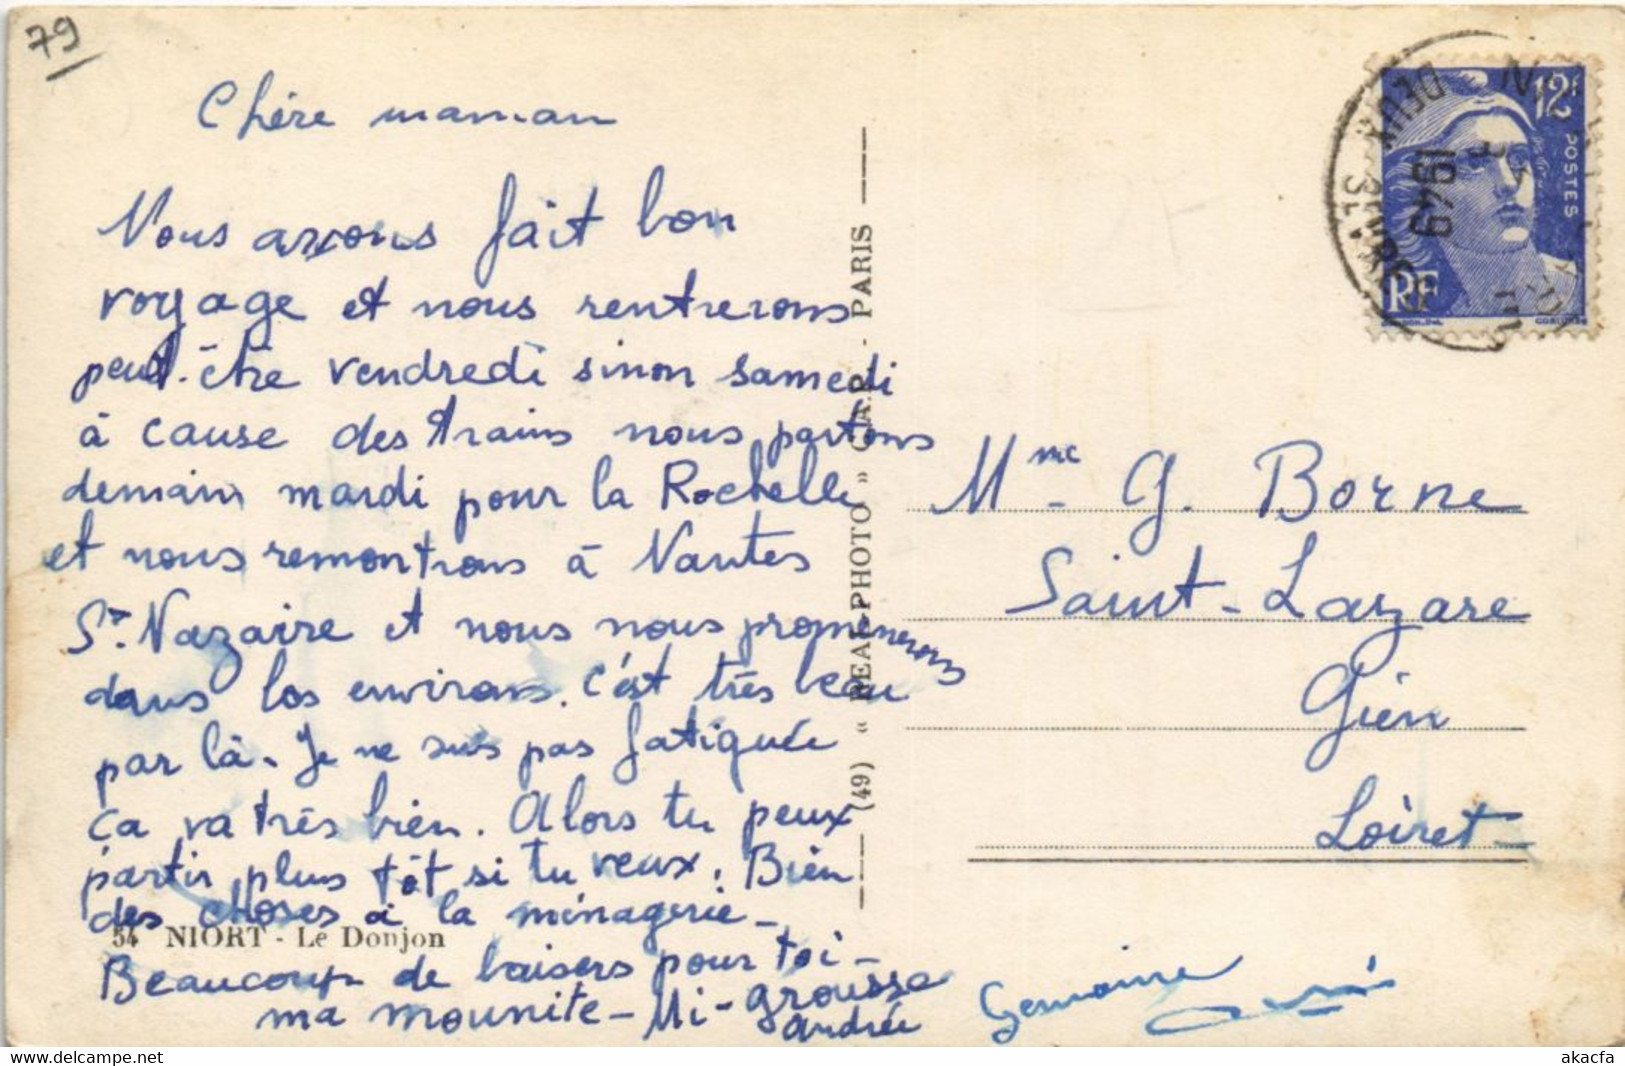 79
Chère maman
Nous avons fait bon
voyage et nous rentrerons
peut-être vendredi sinon samedi
à cause des trains nous partons
demain mardi pour la Rochelle
et nous remontrons à Nantes
St. Nazaire et nous nous promènerons
dans les environs. c'est très beau
par là. Je ne suis pas fatiguée
ça va très bien. Alors tu peux
partir plus tôt si tu veux. Bien
des choses à la ménagerie -
54 NIORT - Le Donjon
Beaucoup de baisers pour toi -
ma mounite - Mi-grousse
Andrée
Germaine
(49) « REAL-PHOTO » C.A.P. - PARIS
12F
POSTES
RF
DEUX SEVRES
1949
Mme G. Borne
Saint-Lazare
Gien
Loiret
akacfa